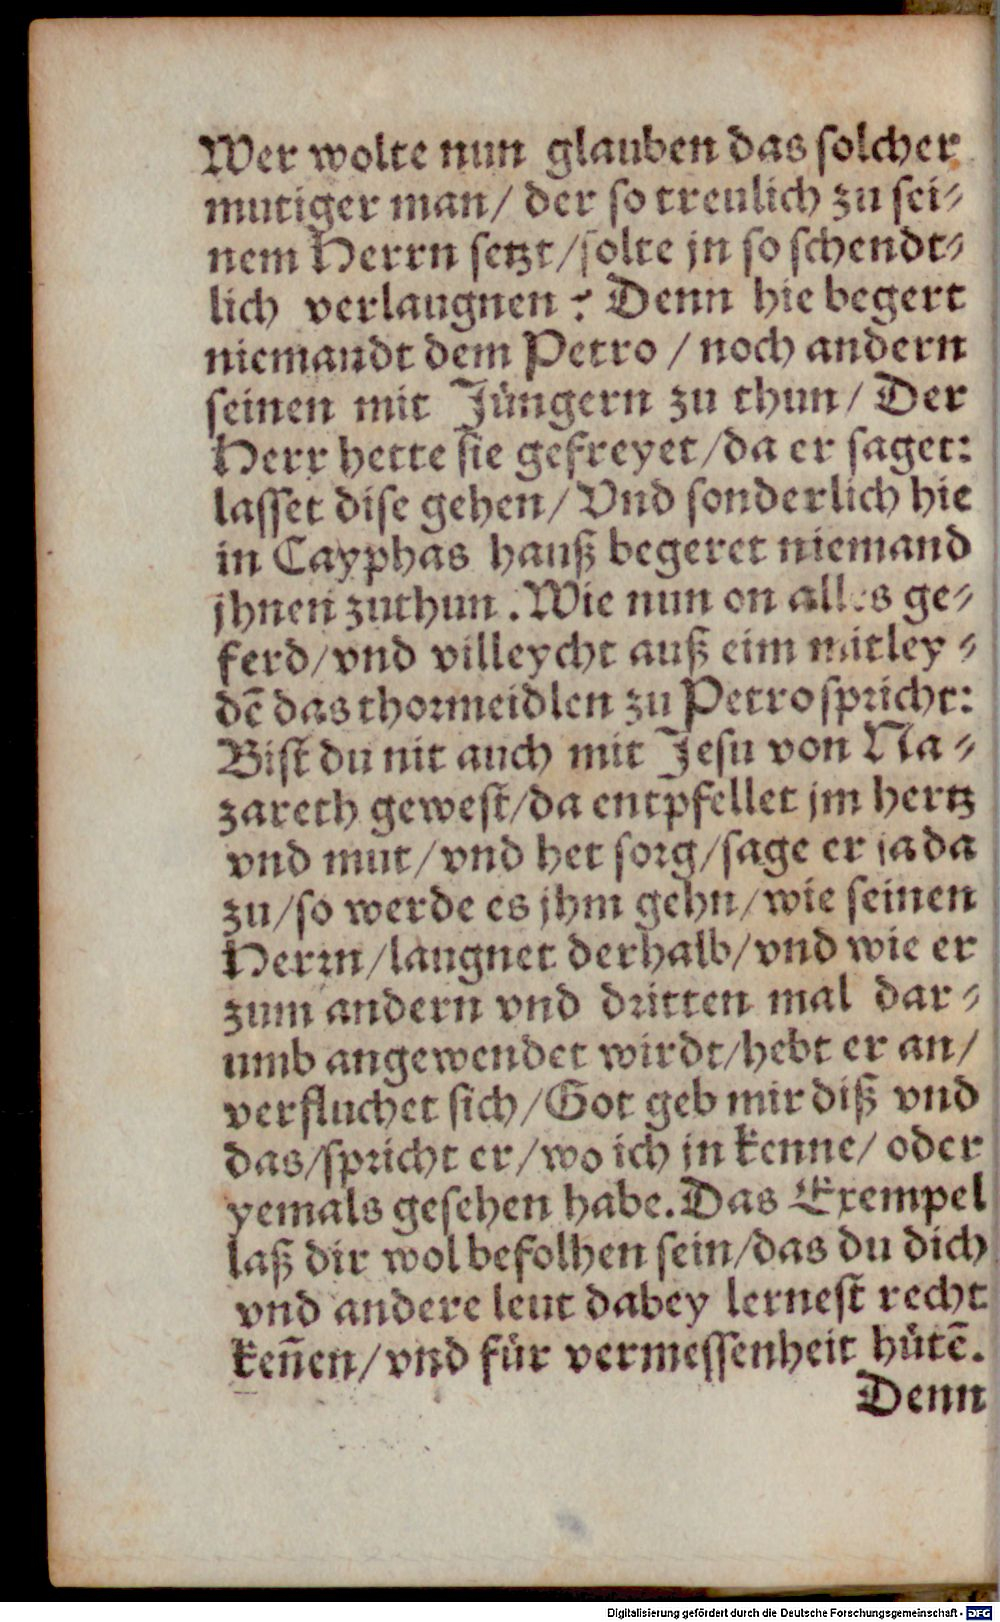 Wer wolte nun glauben das solcher
mutiger man/ der so treulich zu sei⸗
nem Herrn setzt/solte jn so schendt⸗
lich verlaugnen? Denn hie begert
niemandt dem Petro / noch andern
seinen mit Jüngern zu thun/ Der
Herr hette sie gefreyet/da er saget:
lasset dise gehen/ Vnd sonderlich hie
in Cayphas hauß begeret niemand
jhnen zuthun. Wie nun on alles ge⸗
ferd/vnd villeycht auß eim mitley⸗
dē das thormeidlen zu Petro spricht:
Bist du nit auch mit Jesu von Na⸗
zareth gewest/da entpfellet jm hertz
vnd mut/vnd het sorg/sage er ja da
zu/so werde es jhm gehn/wie seinen
Herrn/laugnet derhalb/vnd wie er
zum andern vnd dritten mal dar⸗
umb angewendet wirdt/hebt er an/
verfluchet sich/Got geb mir diß vnd
das/spricht er/wo ich jn kenne/ oder
yemals gesehen habe. Das Exempel
laß dir wol befolhen sein/das du dich
vnd andere leut dabey lernest recht
keñen/vnd für vermessenheit hütē.
Denn
Digitalisierung gefördert durch die Deutsche Forschungsgemeinschaft - DFG